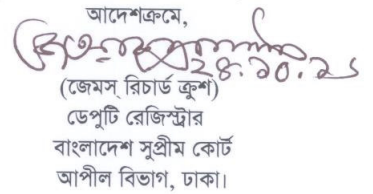 আদেশক্রমে,
২৪.১০.২১
(জেমস্ রিচার্ড ক্রুশ)
ডেপুটি রেজিস্ট্রার
বাংলাদেশ সুপ্রীম কোর্ট
আপীল বিভাগ, ঢাকা।